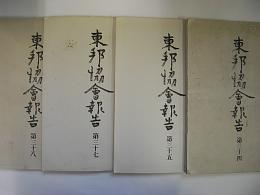 東邦協會報告
第三十八
東邦協會報告
第三十七
東邦協會報告
第三十五
東邦協會報告
第三十四